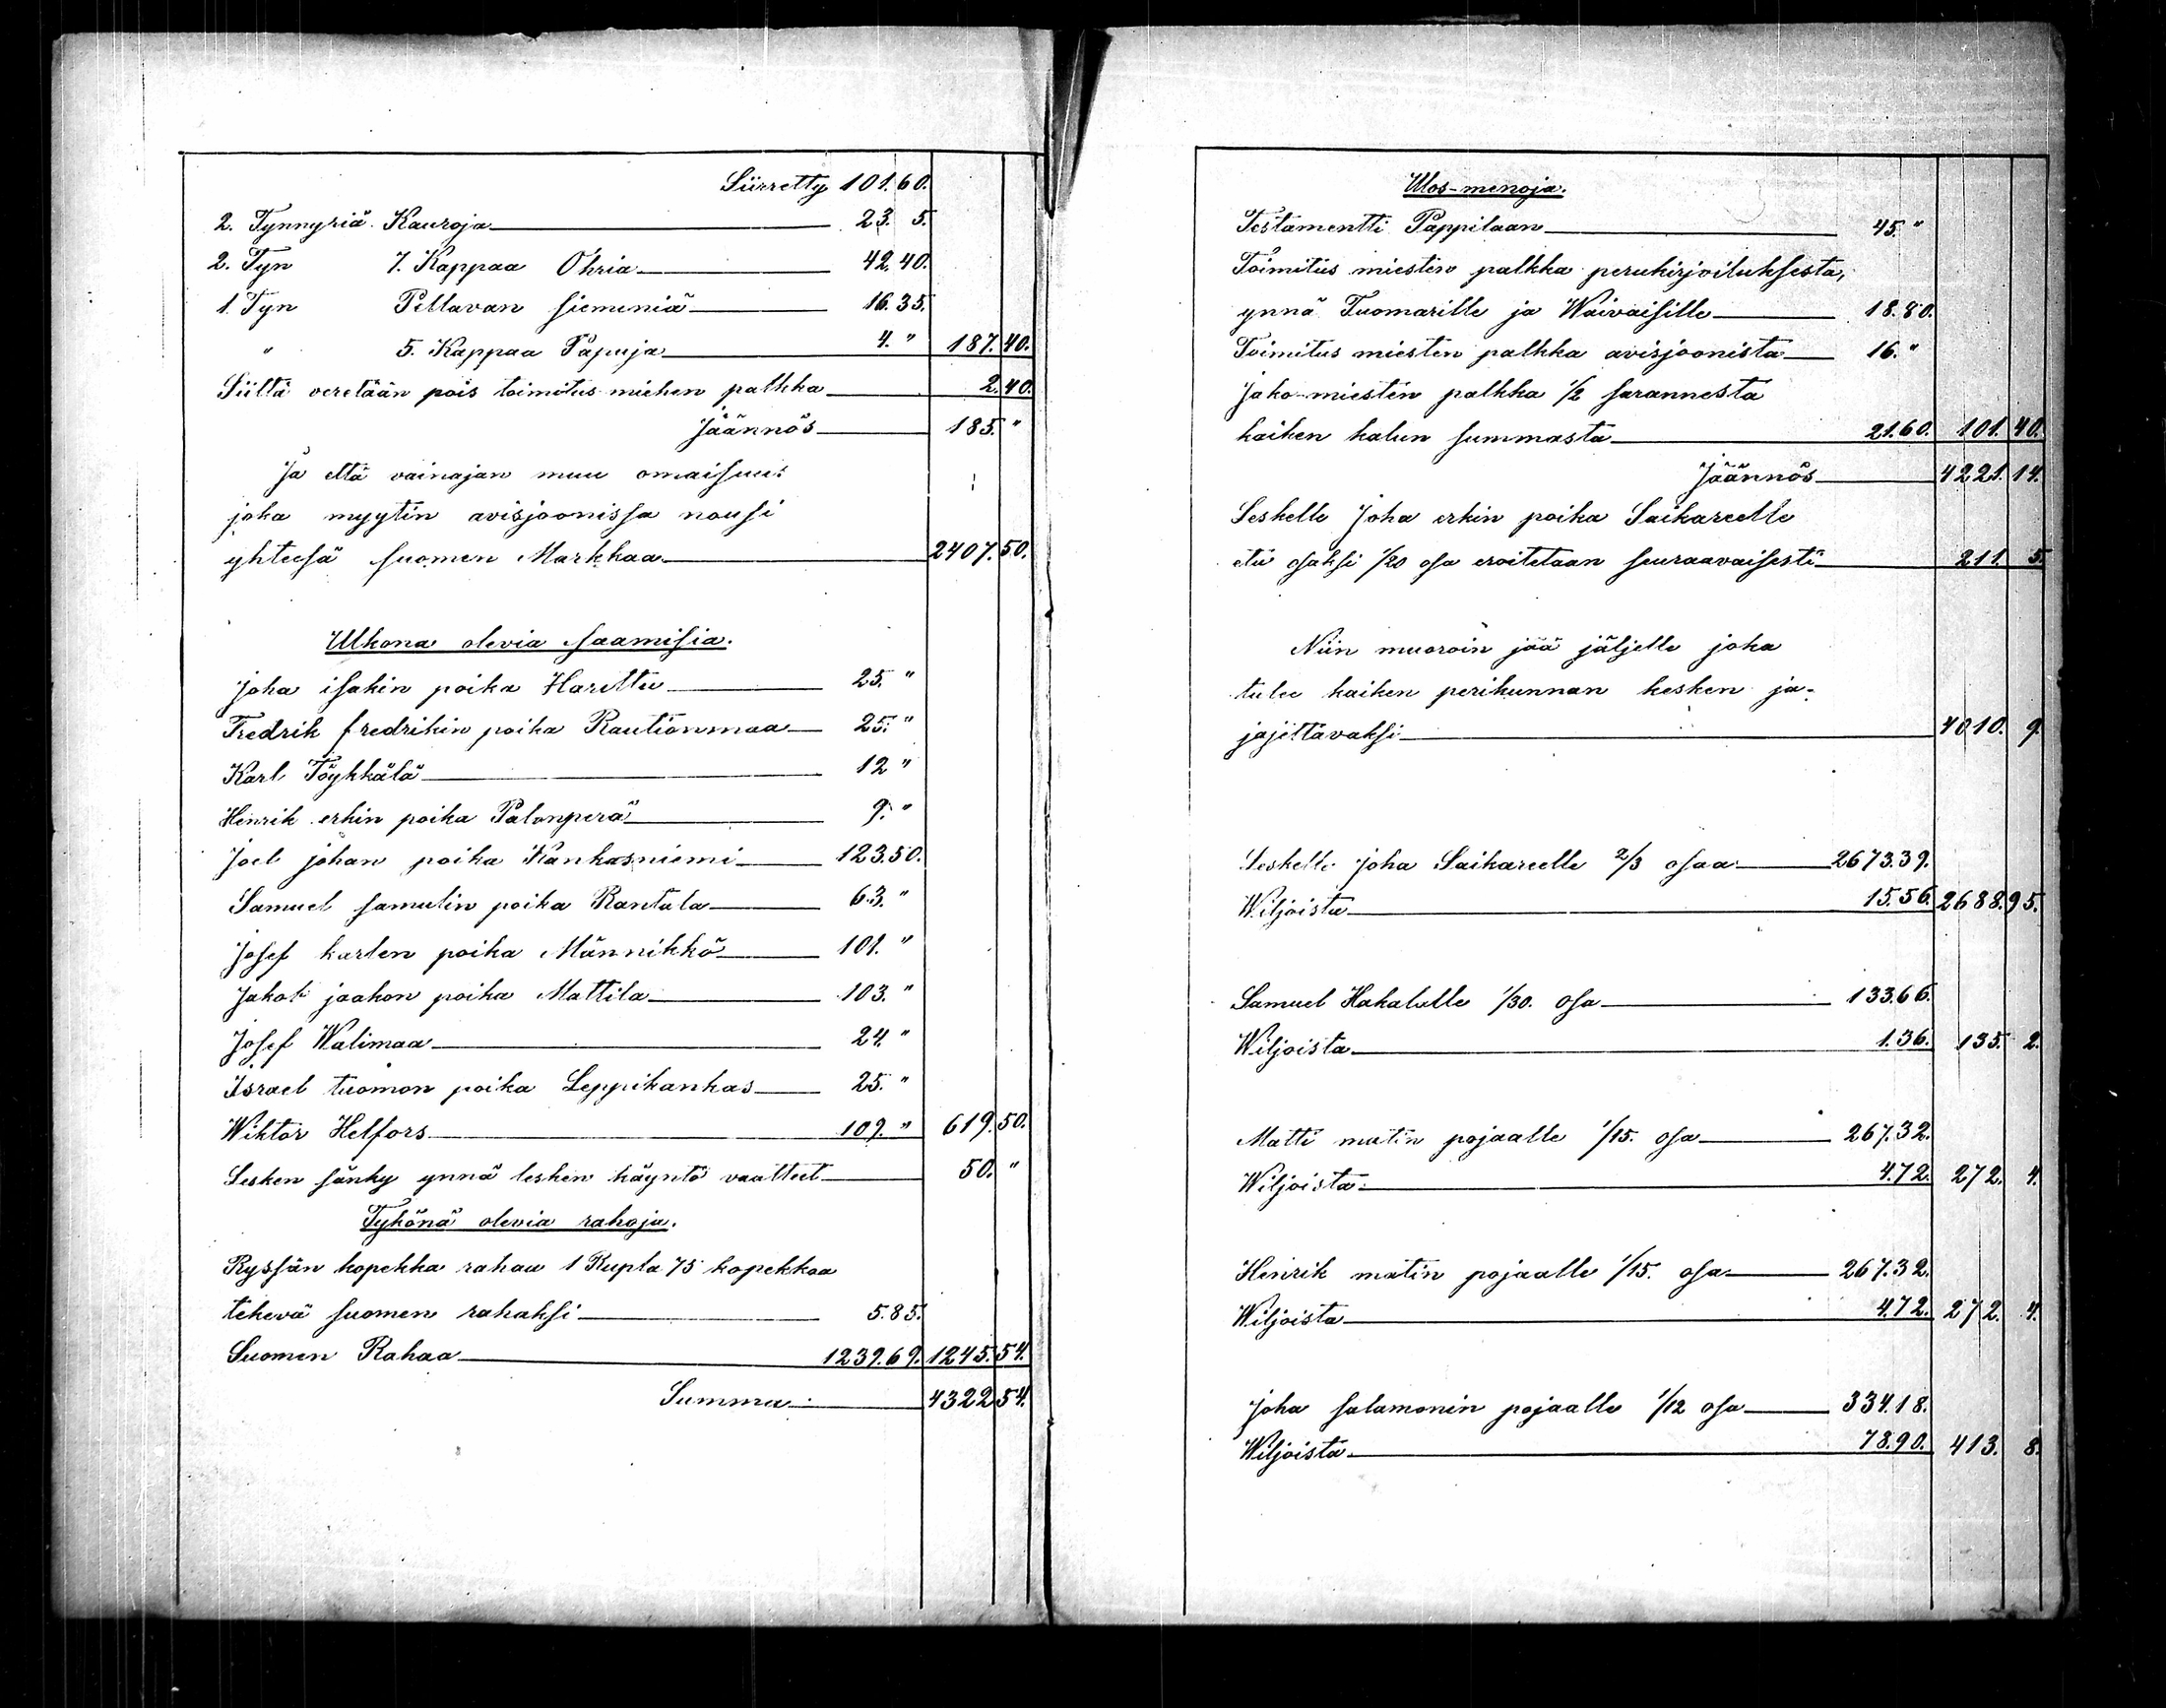 Siirretty 101.60.
2. Tynnyriä Kauroja 23. 5.
2. Tyn 7. Kappaa Ohria 42.40.
1. Tyn Pellavan siemeniä 16.35.
" 5. Kappaa Papuja 4. " 187.40.
Siittä veretään pois toimitus miehen palkka 2.40.
Jäännös 185. "
Ja että vainajan muu omaisuus
joka myytin avisjoonissa nousi
yhteesä suomen Markkaa 2407.50.
Ulkona olevia saamisia.
Joha isakin poika Harittu 25. "
Fredrik fredrikin poika Rautionmaa 25. "
Karl Töykkälä 12 "
Henrik erkin poika Palonperä 9. "
Joel johan poika Kankasniemi 123.50.
Samuel samulin poika Rantala 63. "
Josef karlen poika Männikkö 101. "
Jakob jaakon poika Mattila 103. "
Josef Walimaa 24. "
Israel tuomon poika Leppikankas 25. "
Wiktor Helfors 109. " 619.50.
Lesken sänky ynnä lesken käyntö vaatteet 50. "
Tykönä olevia rahoja.
Ryssän kopekka rahaa 1 Rupla 75 kopekkaa
tekevä suomen rahaksi 5.85.
Suomen Rahaa 1239.69. 1245.54.
Summa 4322.54.
Ulos-menoja.
Testamentti Pappilaan 45. "
Toimitus miesten palkka perukirjoituksesta,
ynnä Tuomarille ja Waivaisille 18.80.
Toimitus miesten palkka avisjoonista 16. "
Jako-miesten palkka 1/2 sarannesta
kaiken kalun summasta 21.60. 101.40.
Jäännös 4221.14.
Leskelle Joha erkin poika Saikareelle
etu osaksi 1/20 osa eroitetaan seuraavaisesti 211. 5.
Niin muoroin jää jäljelle joka
tulee kaiken perikunnan kesken ja-
jajettavaksi 4010. 9.
Leskelle Joha Saikareelle 2/3 osaa 2673.39.
Wiljoista 15.56. 2688.95.
Samuel Hakalalle 1/30. osa 133.66.
Wiljoista 1.36. 135. 2.
Matti matin pojaalle 1/15. osa 267.32.
Wiljoista 4.72. 272. 4.
Henrik matin pojaalle 1/15. osa 267.32.
Wiljoista 4.72. 272. 4.
Joha salamonin pojaalle 1/12 osa 334.18.
Wiljoista 78.90. 413. 8.